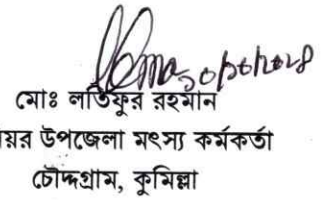 মোঃ লতিফুর রহমান
য়র উপজেলা মৎস্য কর্মকর্তা
চৌদ্দগ্রাম, কুমিল্লা